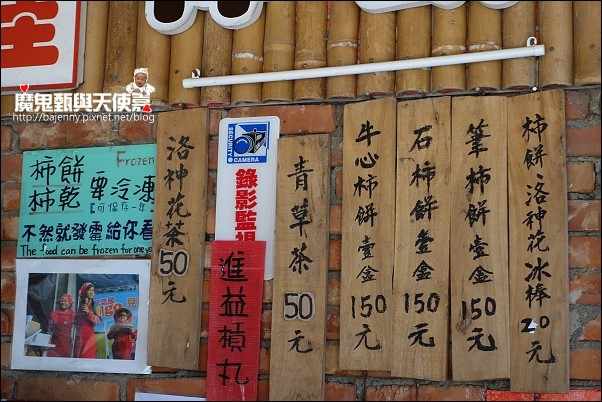 魔鬼甄與天使嘉
http://bajenny.pixnet.net/blog
柿餅 Frozen
柿乾 要冷凍
【可保存一年】
不然就發霉給你看
The food can be frozen for one year
洛神花茶50元
SECURITY CAMERA
錄影監視
進益槓丸
青草茶50元
牛心柿餅壹盒150元
石柿餅壹盒150元
筆柿餅壹盒150元
柿餅、洛神花冰棒20元